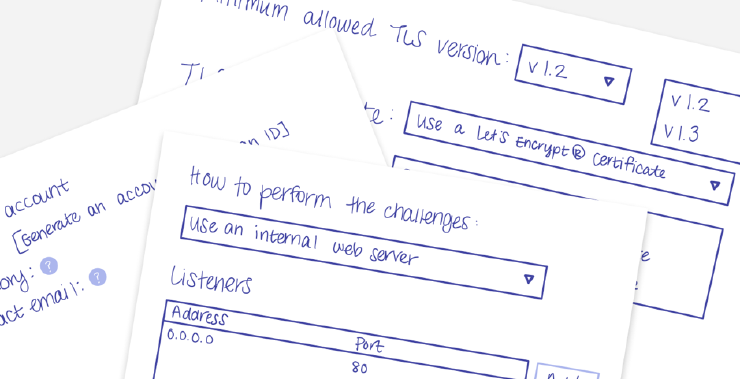 allowed TLS version:
v 1.2
v 1.2
v 1.3
Use a Let's Encrypt® certificate
ID]
account
[Generate an
?
email: ?
How to perform the challenges:
Use an internal web server
Listeners
Address Port
0.0.0.0 80